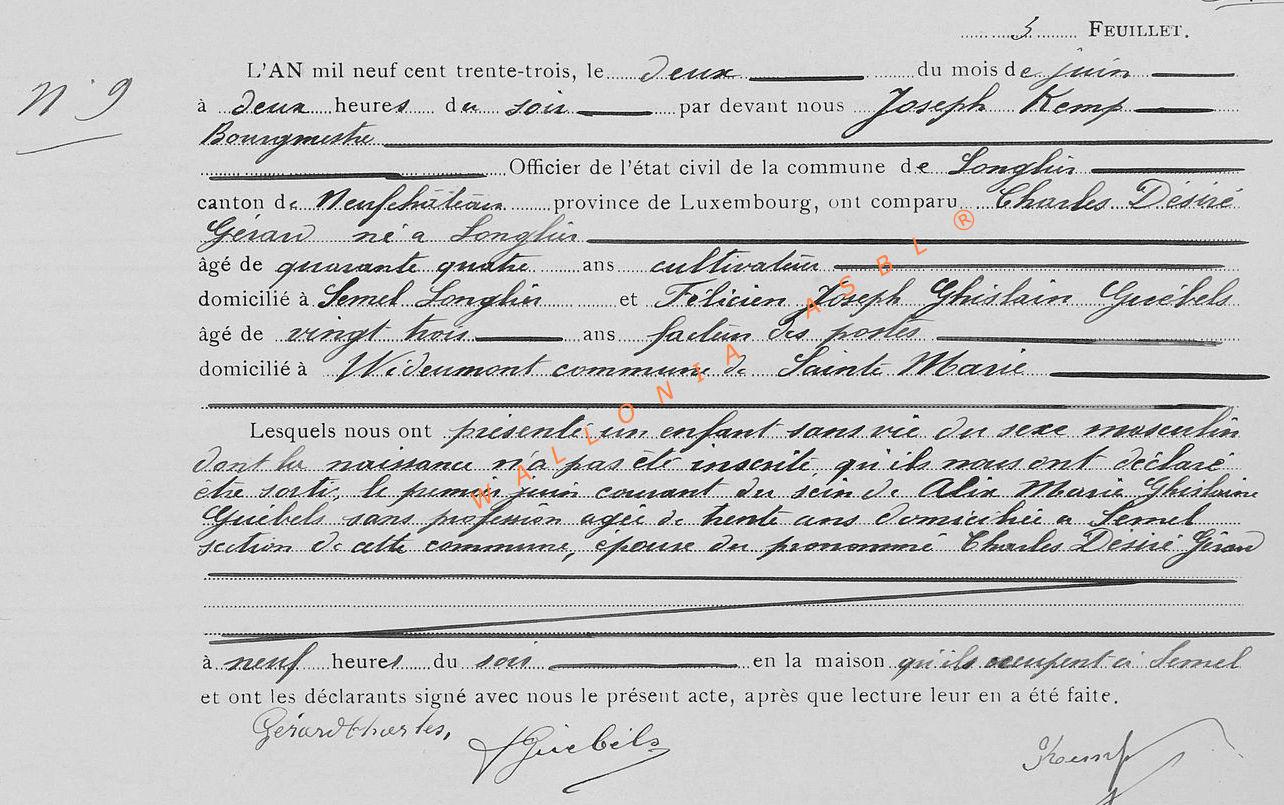 5 FEUILLET.
N° 9
L'AN mil neuf cent trente-trois, le deux du mois de juin
à deux heures du soir par devant nous Joseph Kemp
Bourgmestre
Officier de l'état civil de la commune de Longlier
canton de Neufchâteau province de Luxembourg, ont comparu Charles Désiré
Gérard né a Longlier
âgé de quarante quatre ans cultivateur
domicilié à Semel Longlier et Félicien Joseph Ghislain Guébels
âgé de vingt trois ans facteur des postes
domicilié à Wideumont commune de Sainte Marie
Lesquels nous ont présenté un enfant sans vie du sexe masculin
dont la naissance n'a pas été inscrite, qu'ils nous ont déclaré
être sorti, le premier juin courant du sein de Alix Marie Ghislaine
Guébels sans profession agée de trente ans domiciliée a Semel
section de cette commune, epouse du prenommé Charles Désiré Gérard
à neuf heures du soir en la maison qu'ils occupent à Semel
et ont les déclarants signé avec nous le présent acte, après que lecture leur en a été faite.
Gérard Charles, Guebels Kemp
WALLONIA ASBL ®